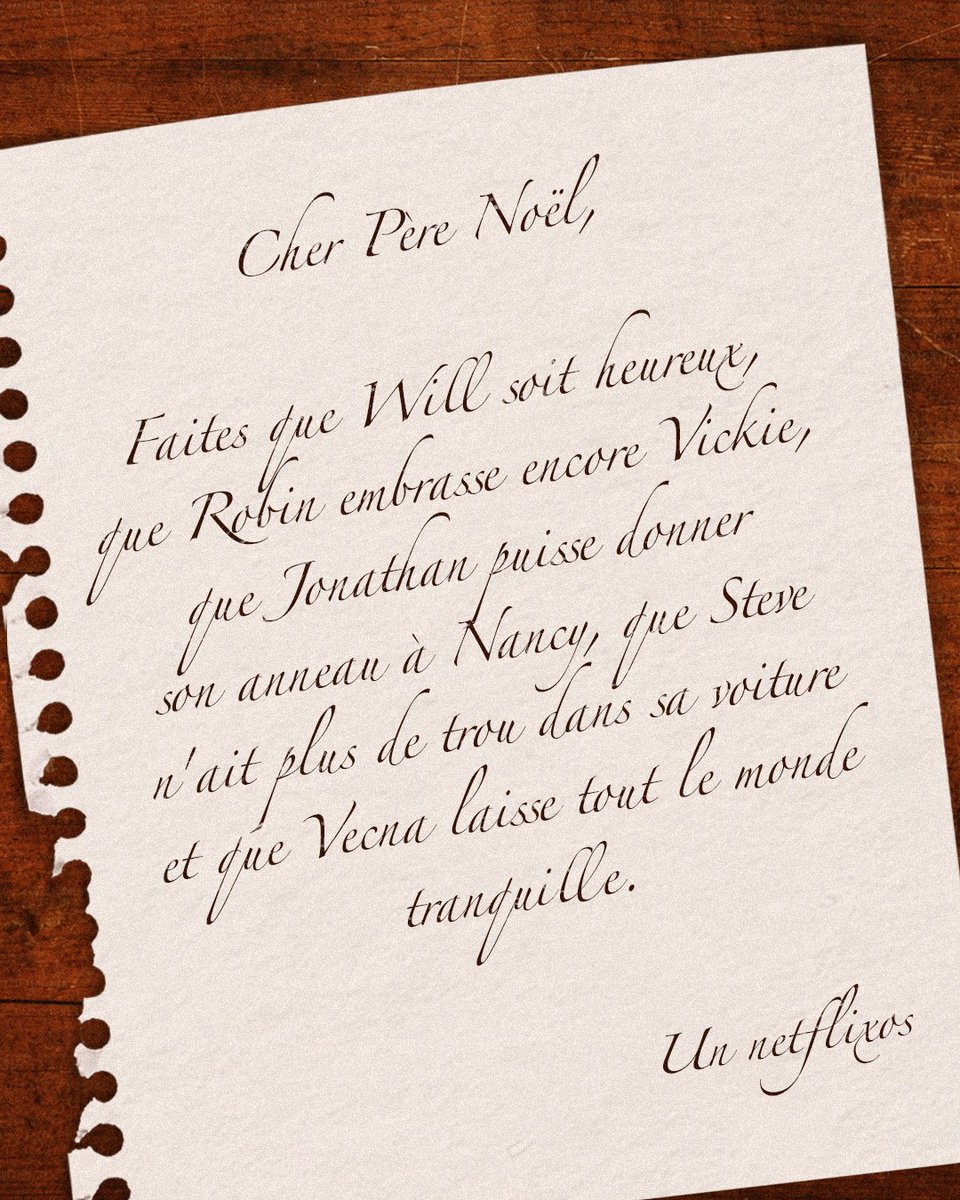 Cher Père Noël,
Faites que Will soit heureux,
que Robin embrasse encore Vickie,
que Jonathan puisse donner
son anneau à Nancy, que Steve
n'ait plus de trou dans sa voiture
et que Vecna laisse tout le monde
tranquille.
Un netflixos